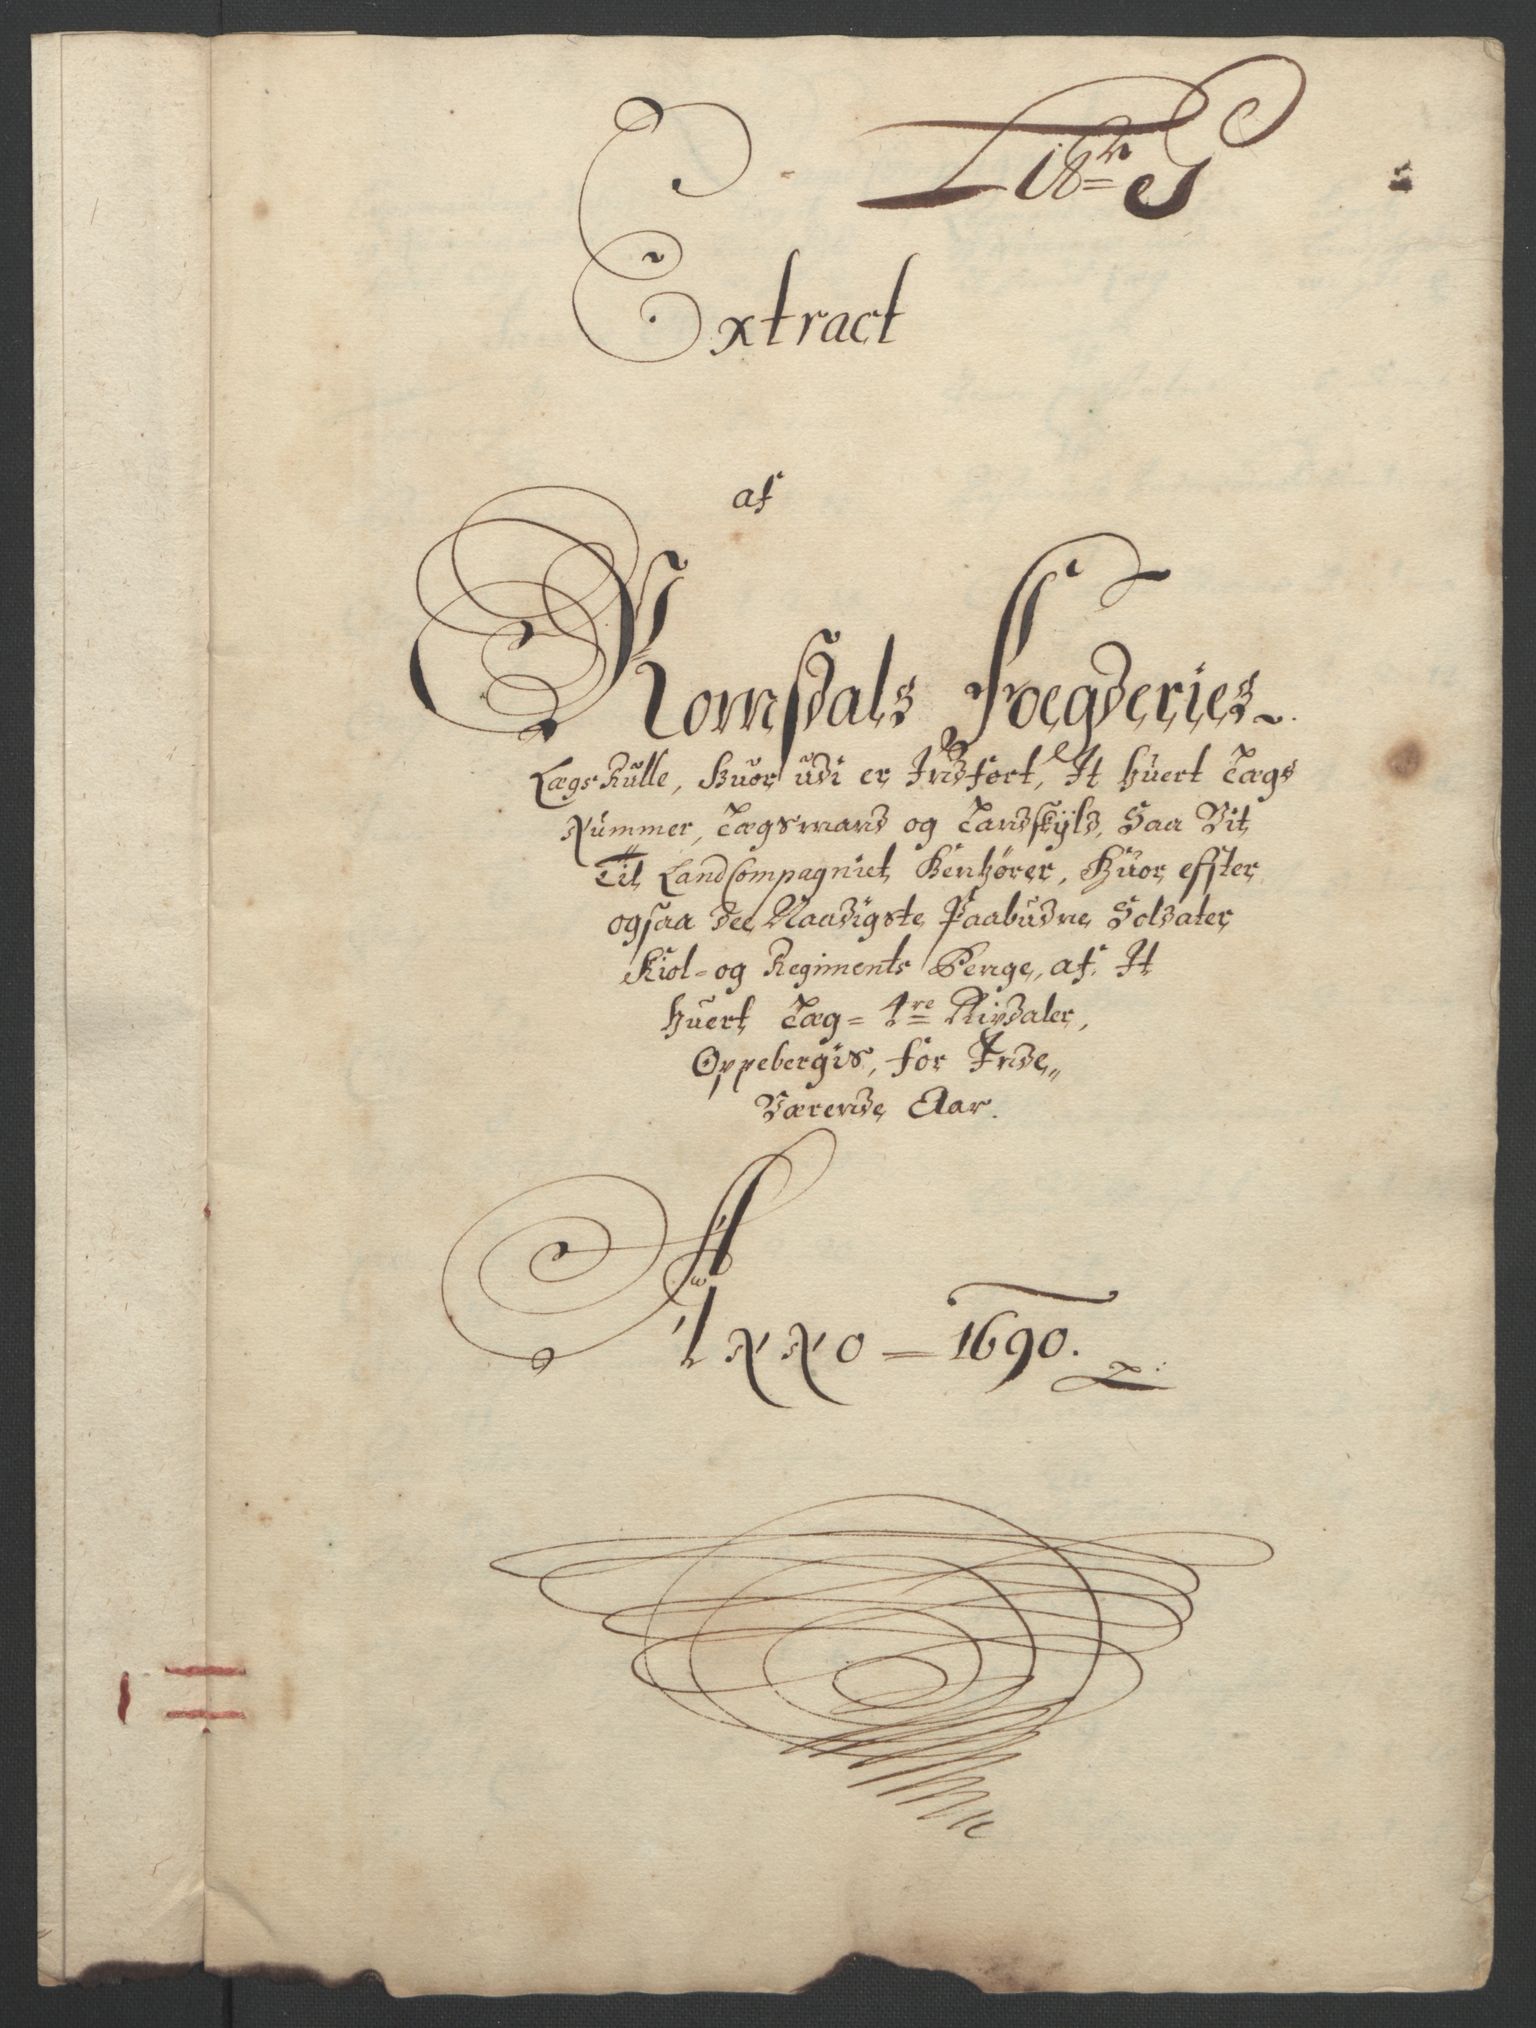 Litr G
Extract
af
Romsdals Foegderies
Lægs Rulle, huor udi er Indført, It huert Lægs
Nummer, Lægsmand og Landskyld, Saa Vit
Til LandCompagniet Henhører, Huor effter
ogsaa dee Naadigste Paabudne Soldater
Kiol- og Regiments Penge, af It
huert Læg = 4re Rixdaler,
Oppebergis, for Inde„
Værende Aar.
ANNO = 1690.